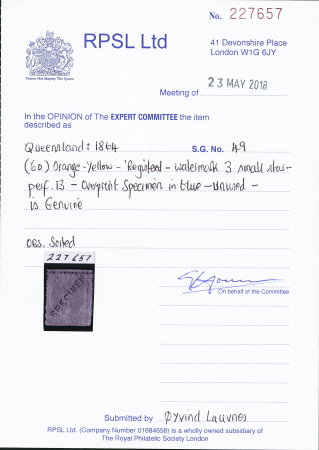 No. 227657
RPSL Ltd
41 Devonshire Place
London W1G 6JY
Meeting of 23 MAY 2018
In the OPINION of The EXPERT COMMITTEE the item
described as
Queensland: 1864 S.G. No. 49
(6d) Orange-Yellow - 'Registered' - watermark 3 small stars -
perf. 13 - Overprint Specimen in blue - Unused -
is Genuine
Obs. Soiled
227657
SPECIMEN
On behalf of the Committee
Submitted by Øyvind Lauvnes
RPSL Ltd. (Company Number 01684658) is a wholly owned subsidiary of
The Royal Philatelic Society London